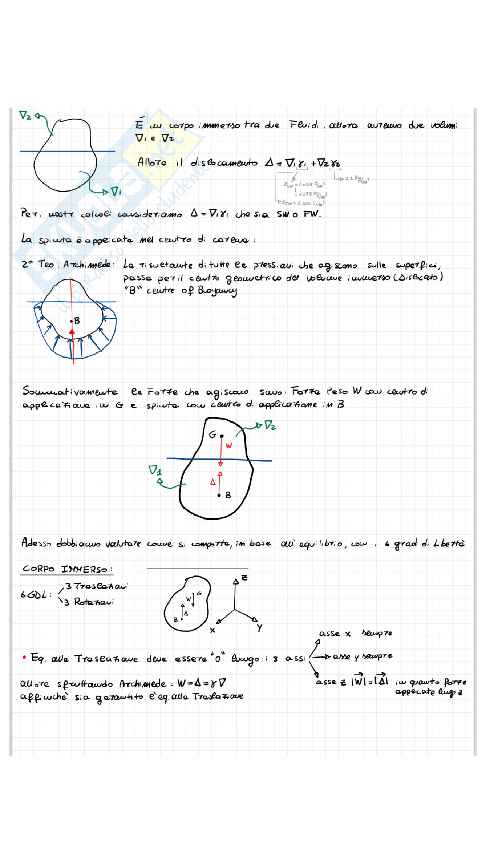 ∇2
È un corpo immerso tra due Fluidi. allora avremo due volumi
∇1 e ∇2
Allora il dislocamento Δ = ∇1γ1 + ∇2γ2
∇1
Per i nostri calcoli consideriamo Δ = ∇1γ1 che sia SW o FW.
La spinta è applicata nel centro di carena:
2° Teo. Archimede: La risultante di tutte le pressioni che agiscono sulle superfici,
passa per il centro geometrico del volume immerso (Dislocato)
"B" centre of Buoyancy
B
Sommativamente le Forze che agiscono sono: Forza Peso W con centro di
applicazione in G e spinta con centro di applicazione in B
∇2
G
W
∇1
Δ
B
Adesso dobbiamo valutare come si comporta, in base all'equilibrio, con i 6 gradi di Libertà
CORPO IMMERSO:
6 GDL:
3 Traslazioni
3 Rotazioni
G
W
Δ
B
z
x
y
asse x sempre
• Eq. alla Traslazione deve essere "0" lungo i 3 assi
asse y sempre
asse z |W| = |Δ| in quanto forze
applicate lungo z
allora sfruttando Archimede: W = Δ = γ∇
affinchè sia garantito l'eq. alla Traslazione